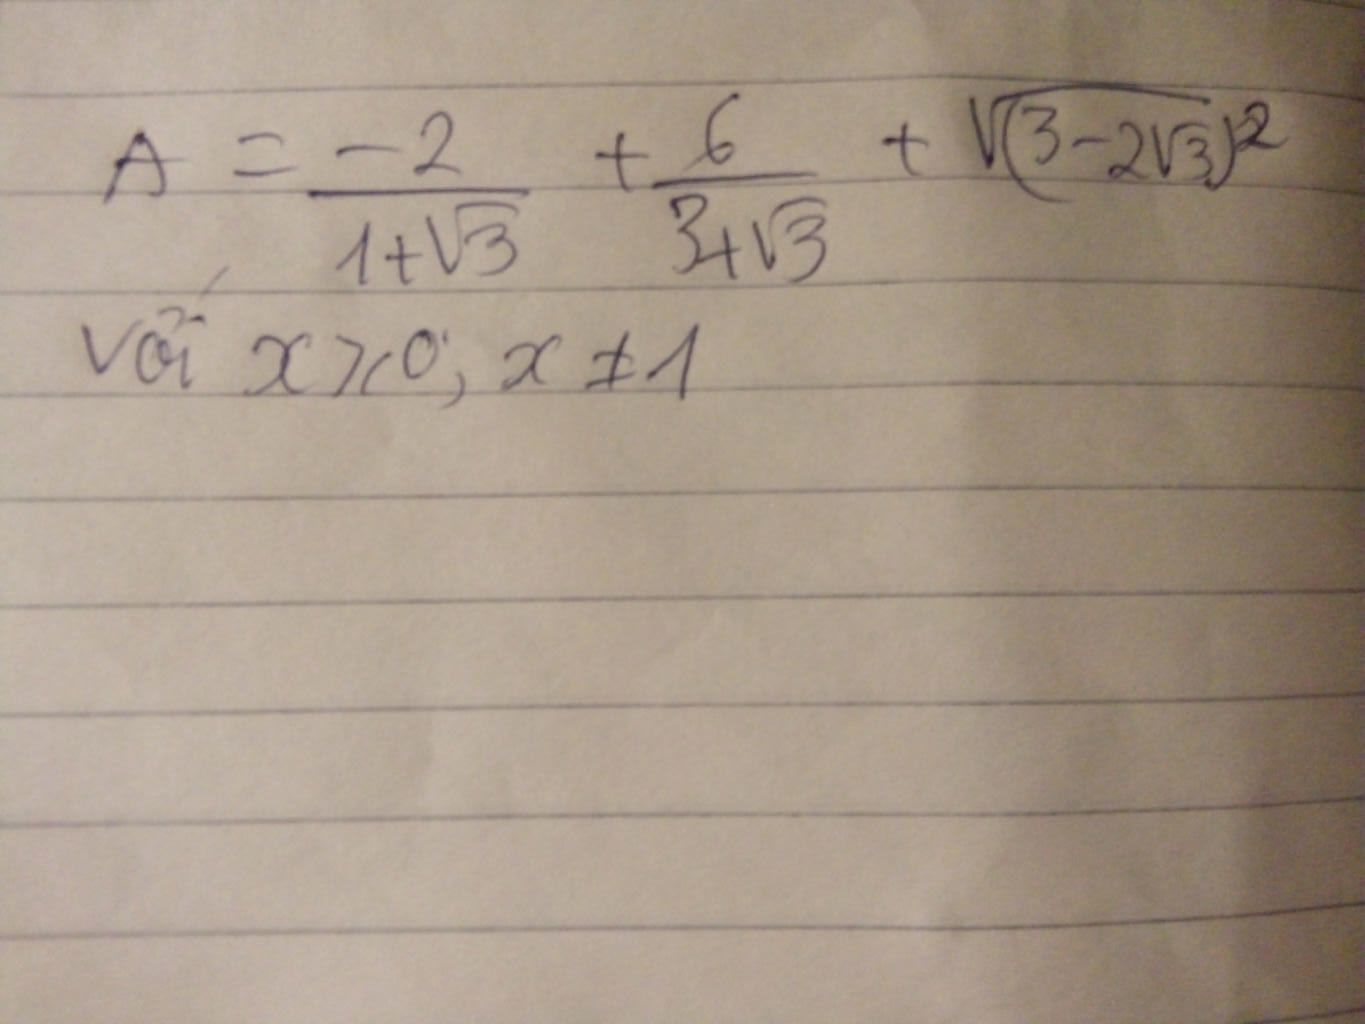 A = -2/(1+√3) + 6/(3+√3) + √(3-2√3)²
Với x ≥ 0; x ≠ 1